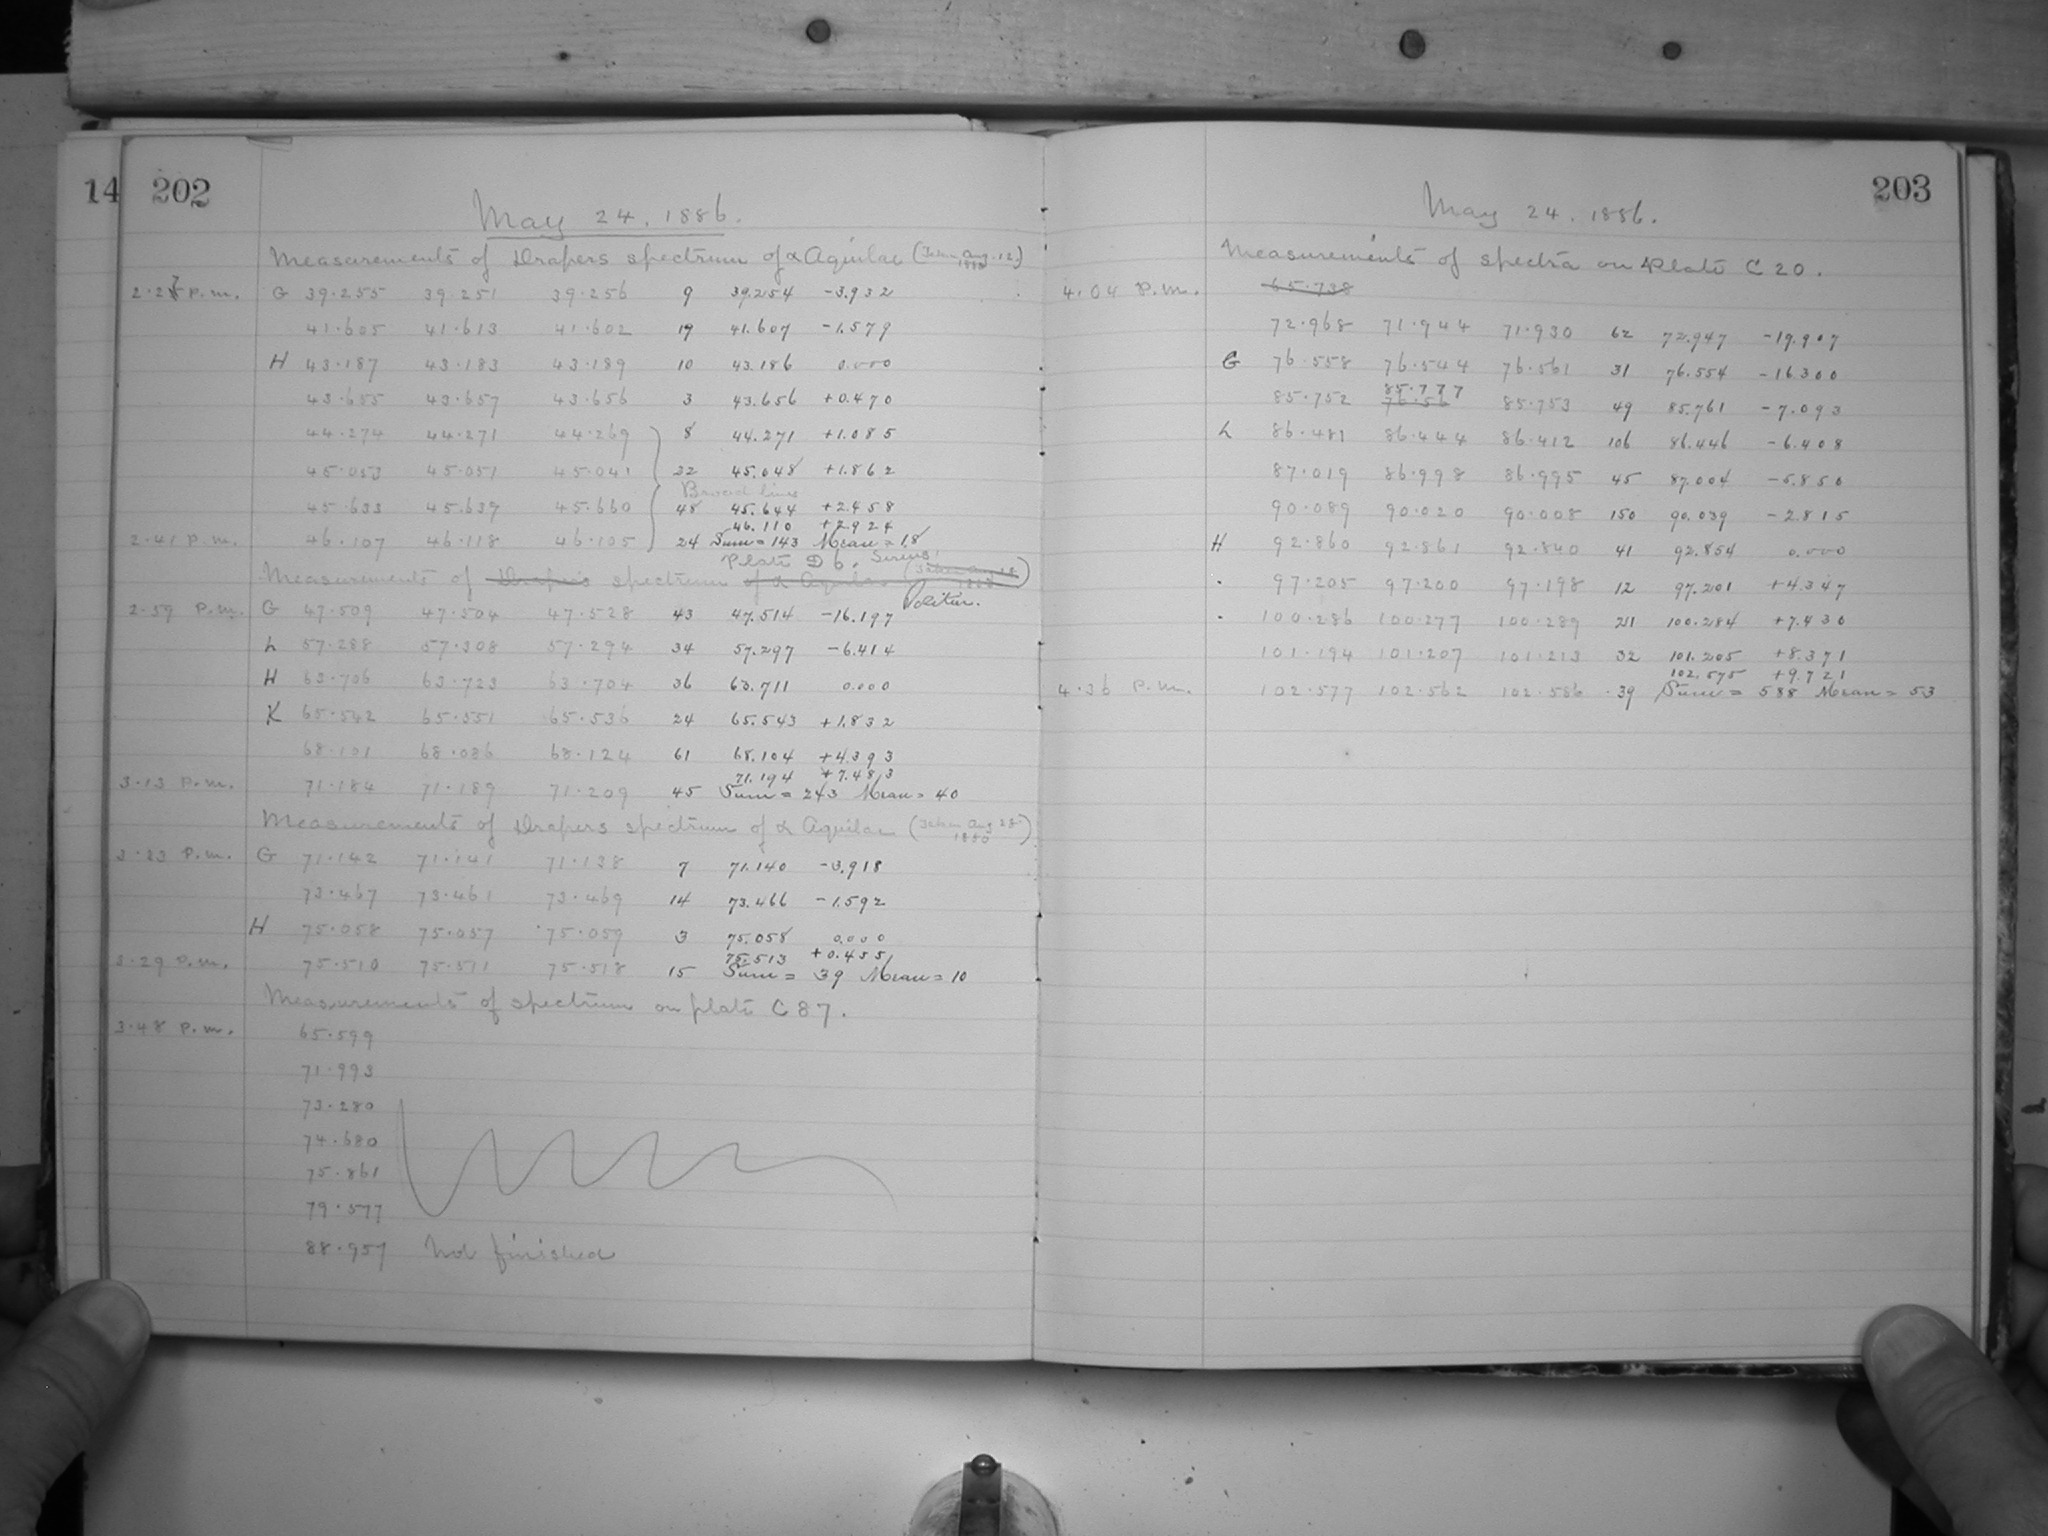 14 202
May 24. 1886.
Measurements of Drapers spectrum of α Aquilae (Taken Aug. 12 1880)
2.27 P.m. G 39.255 39.251 39.256 9 39.254 -3.932
41.605 41.613 41.602 19 41.607 -1.579
H 43.187 43.183 43.189 10 43.186 0.000
43.655 43.657 43.656 3 43.656 +0.470
44.274 44.271 44.269 8 44.271 +1.085
45.053 45.051 45.041 22 45.048 +1.862
Broad line
45.633 45.639 45.660 48 45.644 +2.458
46.110 +2.924
2.41 P.m. 46.107 46.118 46.105 24 Sum = 143 Mean = 18
Plate D 6. Sirius.
Measurements of Draper's spectrum of α Aquilae
Positive.
2.59 P.m. G 47.509 47.504 47.528 43 47.514 -16.197
h 57.288 57.308 57.294 34 57.297 -6.414
H 63.706 63.723 63.704 36 63.711 0.000
K 65.542 65.551 65.536 24 65.543 +1.832
68.101 68.086 68.124 61 68.104 +4.393
71.194 +7.483
3.13 P.m. 71.184 71.189 71.209 45 Sum = 243 Mean = 40
Measurements of Drapers spectrum of α Aquilae (Taken Aug 28 1880)
3.23 P.m. G 71.142 71.141 71.138 7 71.140 -3.918
73.467 73.461 73.469 14 73.466 -1.592
H 75.058 75.057 75.059 3 75.058 0.000
75.513 +0.455
3.29 P.m. 75.510 75.511 75.518 15 Sum = 39 Mean = 10
Measurements of spectrum on plate C 87.
3.48 P.m. 65.599
71.993
73.280
74.680
75.861
79.577
88.957 Not finished
203
May 24. 1886.
Measurements of spectra on Plate C 20.
4.04 P.m. 65.738
72.968 71.944 71.930 62 72.947 -19.907
G 76.558 76.544 76.561 31 76.554 -16.300
85.777
85.752 76.56 85.753 49 85.761 -7.093
h 86.481 86.444 86.412 106 86.446 -6.408
87.019 86.998 86.995 45 87.004 -5.850
90.089 90.020 90.008 150 90.039 -2.815
H 92.860 92.861 92.840 41 92.854 0.000
97.205 97.200 97.198 12 97.201 +4.347
100.286 100.277 100.289 21 100.284 +7.430
101.194 101.207 101.213 32 101.205 +8.371
102.575 +9.721
4.36 P.m. 102.577 102.562 102.586 39 Sum = 588 Mean = 53